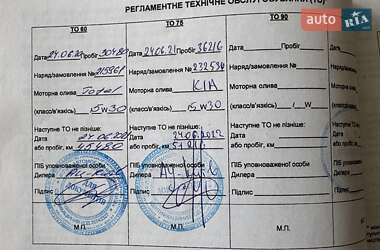 РЕГЛАМЕНТНЕ ТЕХНІЧНЕ ОБСЛУГОВУВАННЯ (ТО)
auto RIA
ТО 60
ТО 75
ТО 90
Дата 24.06.20 Пробіг 30480
Дата 24.06.21 Пробіг 36216
Дата Пробіг
Наряд/замовлення № 215961
Наряд/замовлення № 232534
Наряд/замовлення №
Моторна олива Total
Моторна олива KIA
Моторна олива
(класс/в'язкість) 5W30
(класс/в'язкість) 5W30
(класс/в'язкість) /W
Наступне ТО не пізніше:
Наступне ТО не пізніше:
Наступне ТО не пізніше:
Дата
Дата 24.06.2022
Дата
або пробіг, км 45480
або пробіг, км
або пробіг, км
ПІБ уповноваженої особи
ПІБ уповноваженої особи
ПІБ уповноваженої особи
Дилера
Дилера
Дилера
Підпис
Підпис
Підпис
М.П.
М.П.
М.П.